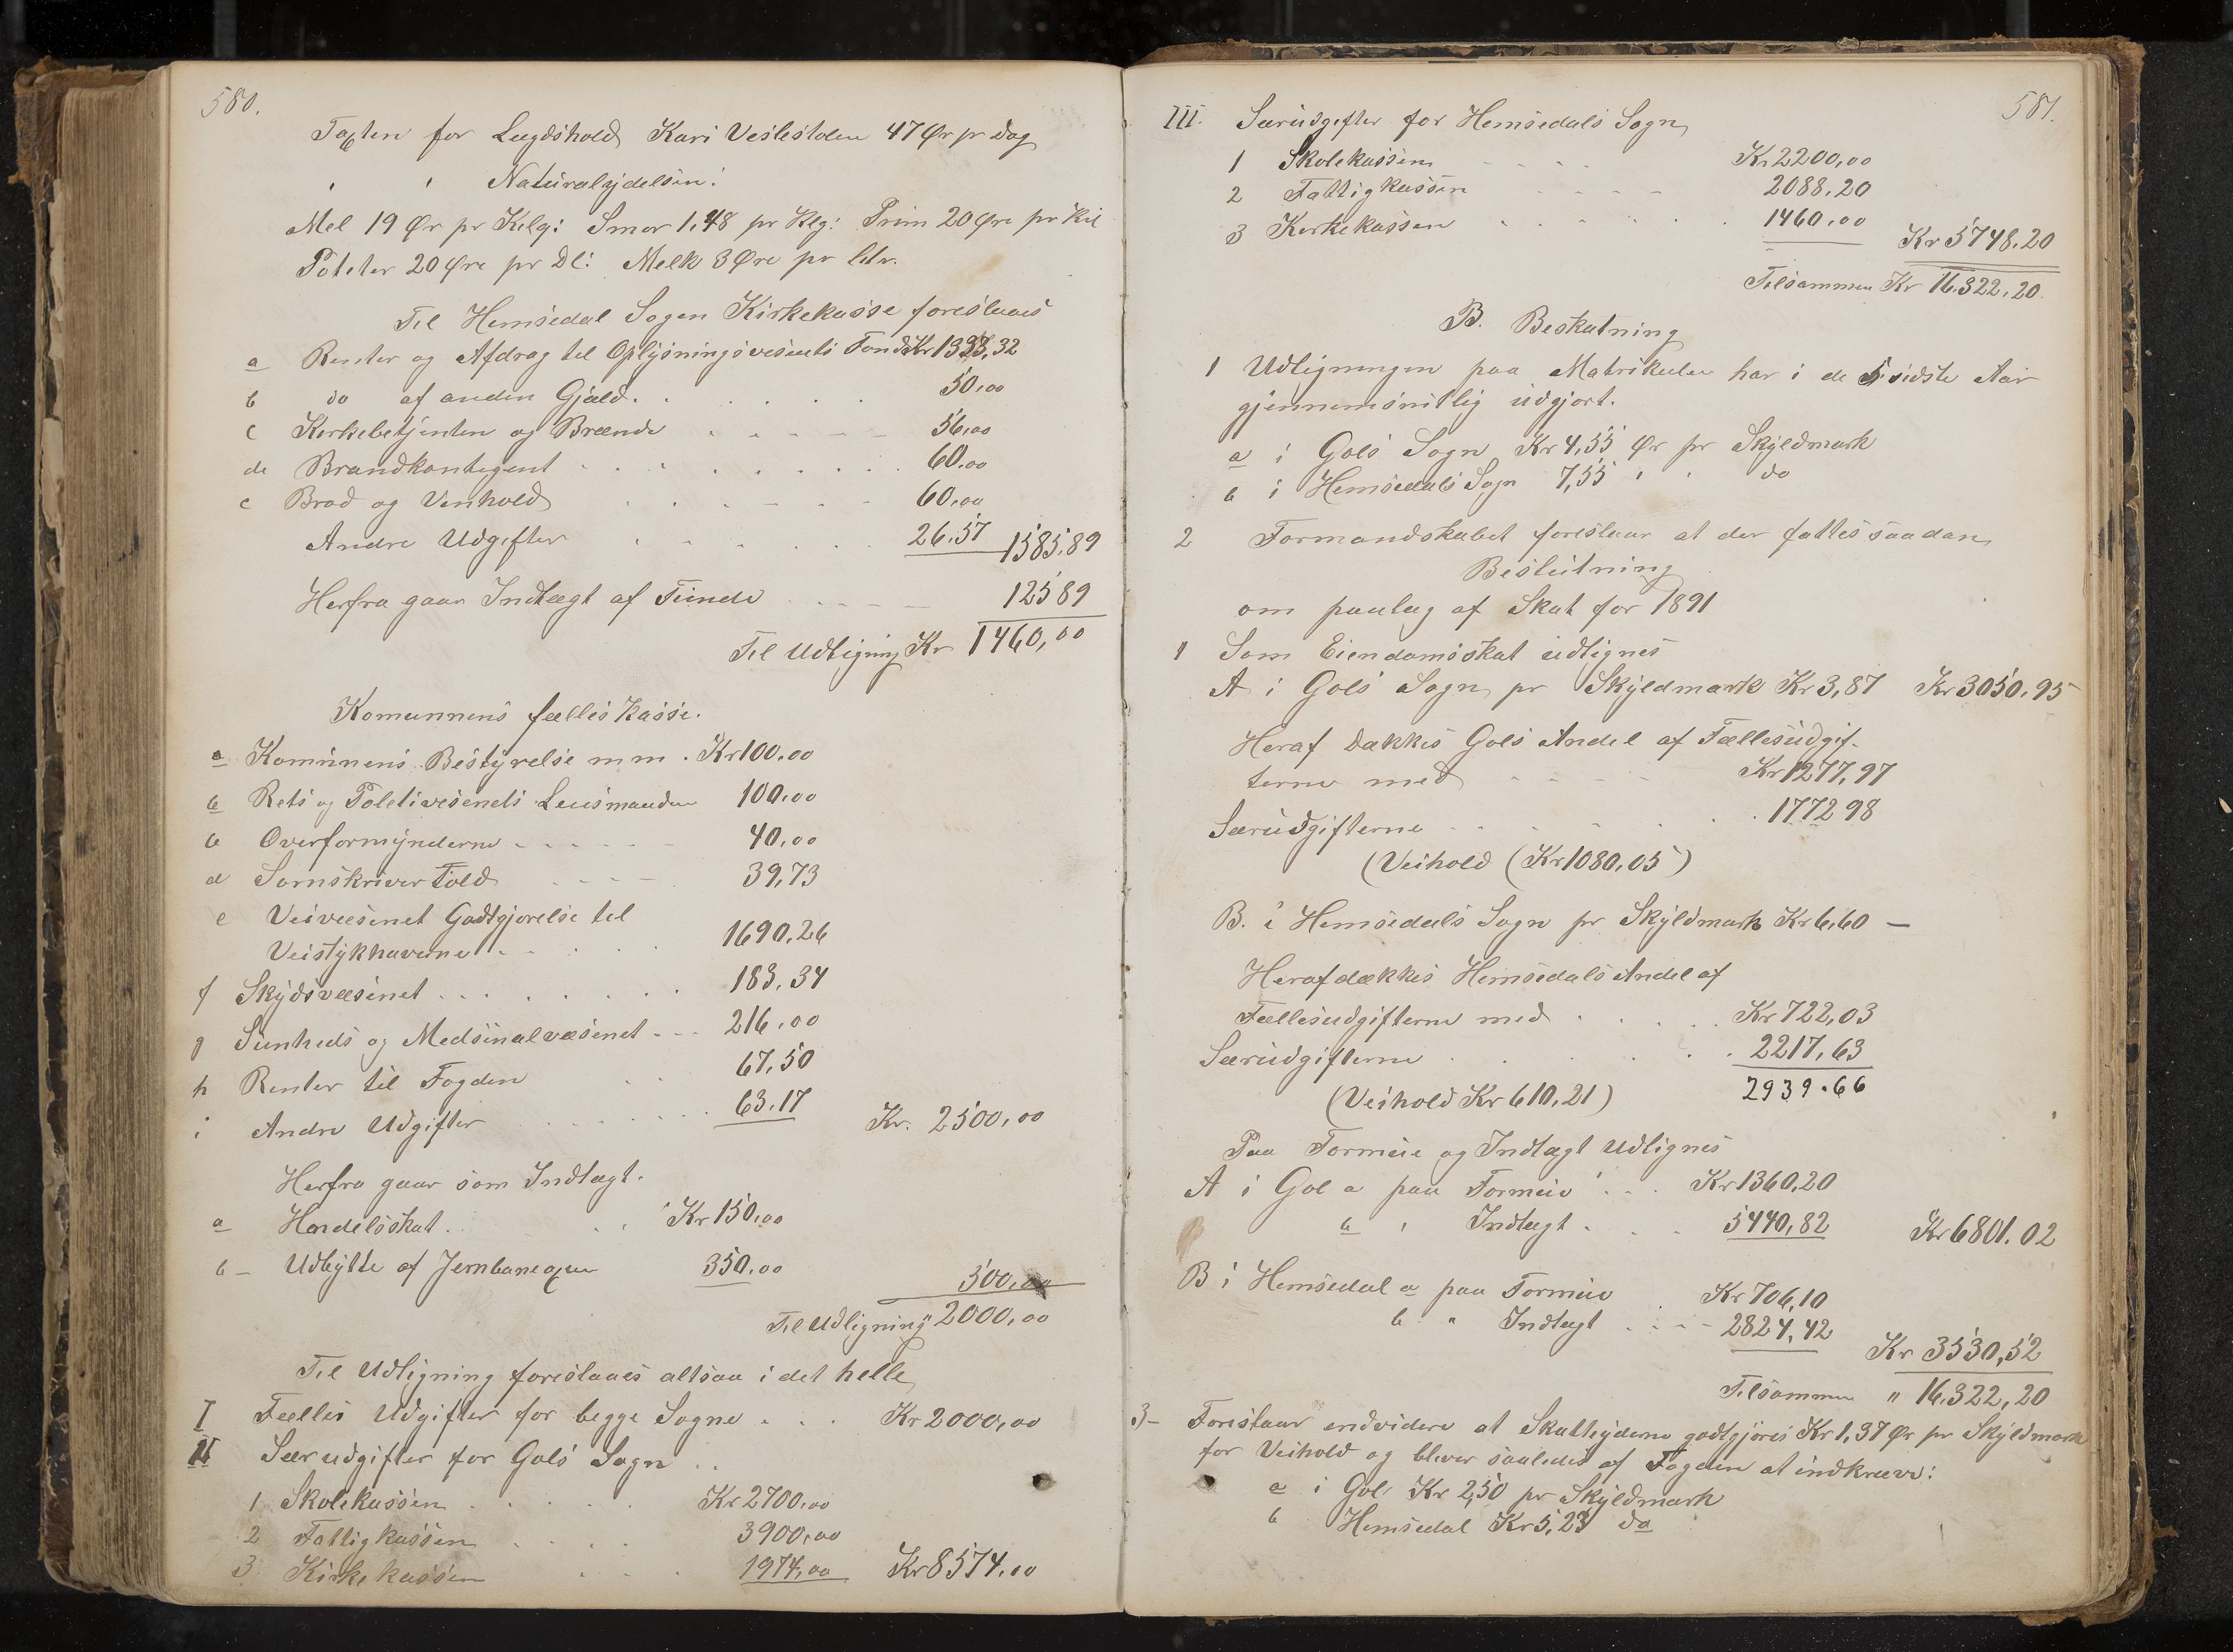 580.
Taxten for Lægdshold Kari Veslestolen 47 Ør pr dag
" " Naturalydelsen:
Mel 19 Ør pr Kilg: Smør 1,48 pr Klg: Prim 20 Øre pr Kil
Poteter 20 Øre pr Dl: Melk 8 Øre pr liter.
Til Hemsedal Sogen Kirkekasse foreslaaes
a Renter og Afdrag til Oplysningsvesents Fond Kr 1333,32
b do af anden Gjæld. 50,00
c Kirkebetjenten og Brænde 56,00
de Brandkontigent 60,00
e Brød og Vinhold 60,00
Andre Udgifter 26,57 1585,89
Herfra gaar Indtægt af Tiende 125 89
Til Udligning Kr 1460,00
Komunnens fælles Kasse.
a Komunens Bestyrelse m m. Kr 100,00
b Rets og Politivesenets Lensmanden 100,00
c Overformynderne 40,00
d Sornskriver Told 39,73
e Veivæsenet Godtgjørelse til
Veistykhaverne 1690,26
f Skydsvæsenet 183,34
g Sunheds og Medsinalvæsenet 216,00
h Renter til Fogden 67,50
i Andre Udgifter 63,17 Kr. 2500,00
Herfra gaar som Indtægt.
a Handelsskat. Kr 150,00
b Udbytte af Jernbaneaxier 350,00 500,00
Til Udligning " 2000,00
Til Udligning foreslaaes altsaa i det helle
I Fælles Udgifter for begge Sogne Kr 2000,00
II Særudgifter for Gols Sogn
1 Skolekassen Kr 2700,00
2 Fattigkassen 3900,00
3 Kirkekassen 1974,00 Kr 8574,00
581.
III. Særudgifter for Hemsedals Sogn
1 Skolekassen Kr 2200,00
2 Fattigkassen 2088,20
3 Kirkekassen 1460,00 Kr 5748,20
Tilsammen Kr 16.322,20.
B. Beskatning
1 Udligningen paa Matrikulen har i de 5 sidste Aar
gjennemsnitlig udgjort.
a i Gols Sogn Kr 4,55 Ør pr Skyldmark
b i Hemsedals Sogn 7,55 " " do
2 Formandskabet foreslaar at der fattes saadan
Beslutning
om paalæg af Skat for 1891
1 Som Eiendomsskat udlignes
A i Gols Sogn pr Skyldmark Kr 3,87 Kr 3050,95
Heraf dækkes Gols Andel af Fællesudgif-
terne med Kr 1277,97
Særudgifterne 1772 98
(Veihold (Kr 1080,05)
B. i Hemsedals Sogn pr Skyldmark Kr 6,60 —
Heraf dækkes Hemsedals Andel af
Fællesudgifterne med Kr 722,03
Særudgifterne 2217,63
(Veihold Kr 610,21) 2939.66
Paa Formue og Indtægt Udlignes
A i Gol a paa Formue Kr 1360,20
b " Indtægt 5440,82 Kr 6801.02
B i Hemsedal a paa Formue Kr 706,10
b " Indtægt 2824,42 Kr 3530,52
Tilsammen " 16.322,20
3- Foreslaar endvidere at Skatteyderne godtgjøres Kr 1,37 Ør pr Skyldmark
for Veihold og bliver saaledes af Fogden at indkræve:
a i Gol Kr 2,50 pr Skyldmark
b Hemsedal Kr 5,23 do